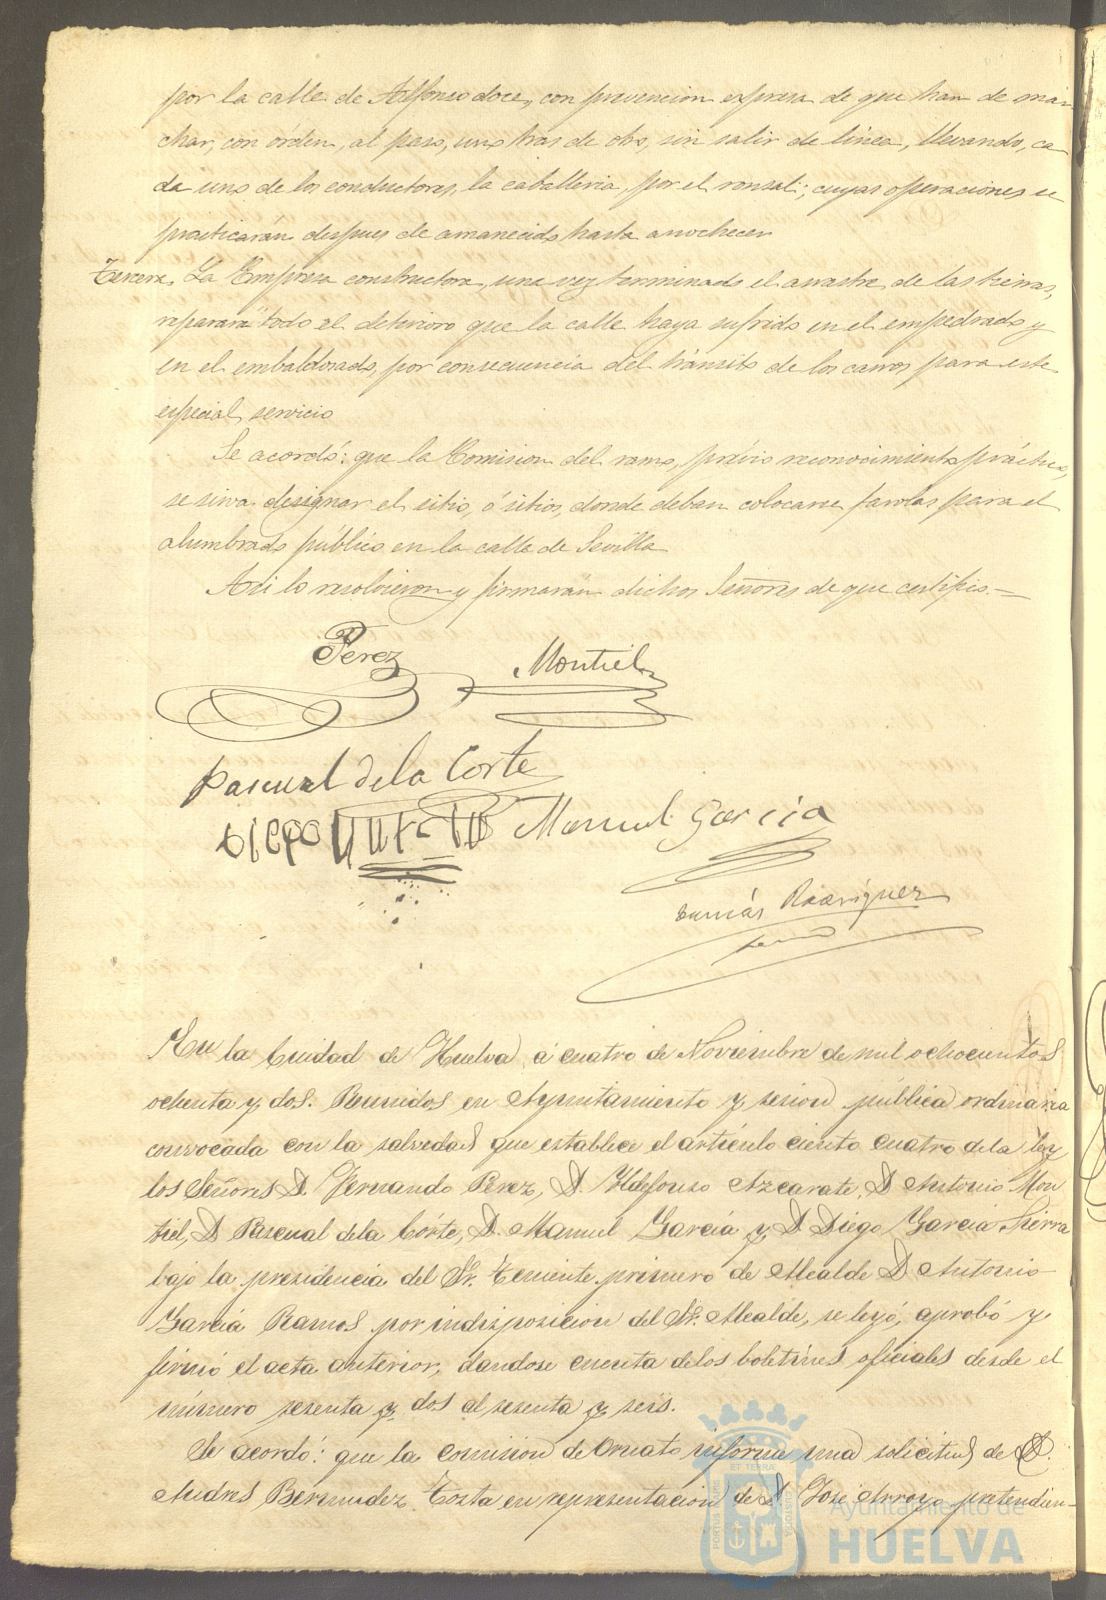 por la calle de Alfonso doce, con prevencion expresa de que han de mar
char, con órden, al paso, uno tras de otro, sin salir de línea, llevando, ca
da uno de los conductores, la caballeria, por el ronsal; cuyas operaciones se
practicarán despues de amanecido hasta anochecer
Tercera. La Empresa constructora, una vez terminado el arrastre de las tierras,
reparará todo el deterioro que la calle haya sufrido en el empedrado y
en el embaldosado, por consecuencia del tránsito de los carros para este
especial servicio
Se acordó: que la Comision del ramo, prévio reconocimiento práctico,
se sirva designar el sitio, ó sitios, donde deban colocarse farolas para el
alumbrado público en la calle de Sevilla
Asi lo resolvieron y firmarán dichos Señores de que certifico.—
Perez Montiel
Pascual de la Corte
Diego Manuel Garcia
Tomás Rodriguez
En la Ciudad de Huelva á cuatro de Noviembre de mil ochocientos
ochenta y dos. Reunidos en Ayuntamiento y sesion pública ordinaria
convocada con la salvedad que establece el artículo ciento cuatro de la ley
los Señores D. Fernando Perez, D. Ildefonso Azcarate, D. Antonio Mon
tiel, D. Pascual de la Córte, D. Manuel García y D. Diego García Sierra
bajo la presidencia del Sr. Teniente primero de Alcalde D. Antonio
García Ramos por indisposicion del Sr. Alcalde, se leyó, aprobó y
firmó el acta anterior, dandose cuenta de los boletines oficiales desde el
número sesenta y dos al sesenta y seis.
Se acordó: que la comision de Ornato informe una solicitud de D.
Andres Bermudez Tosta en representacion de D. José Arroyo pretendien-
Ayuntamiento de
HUELVA